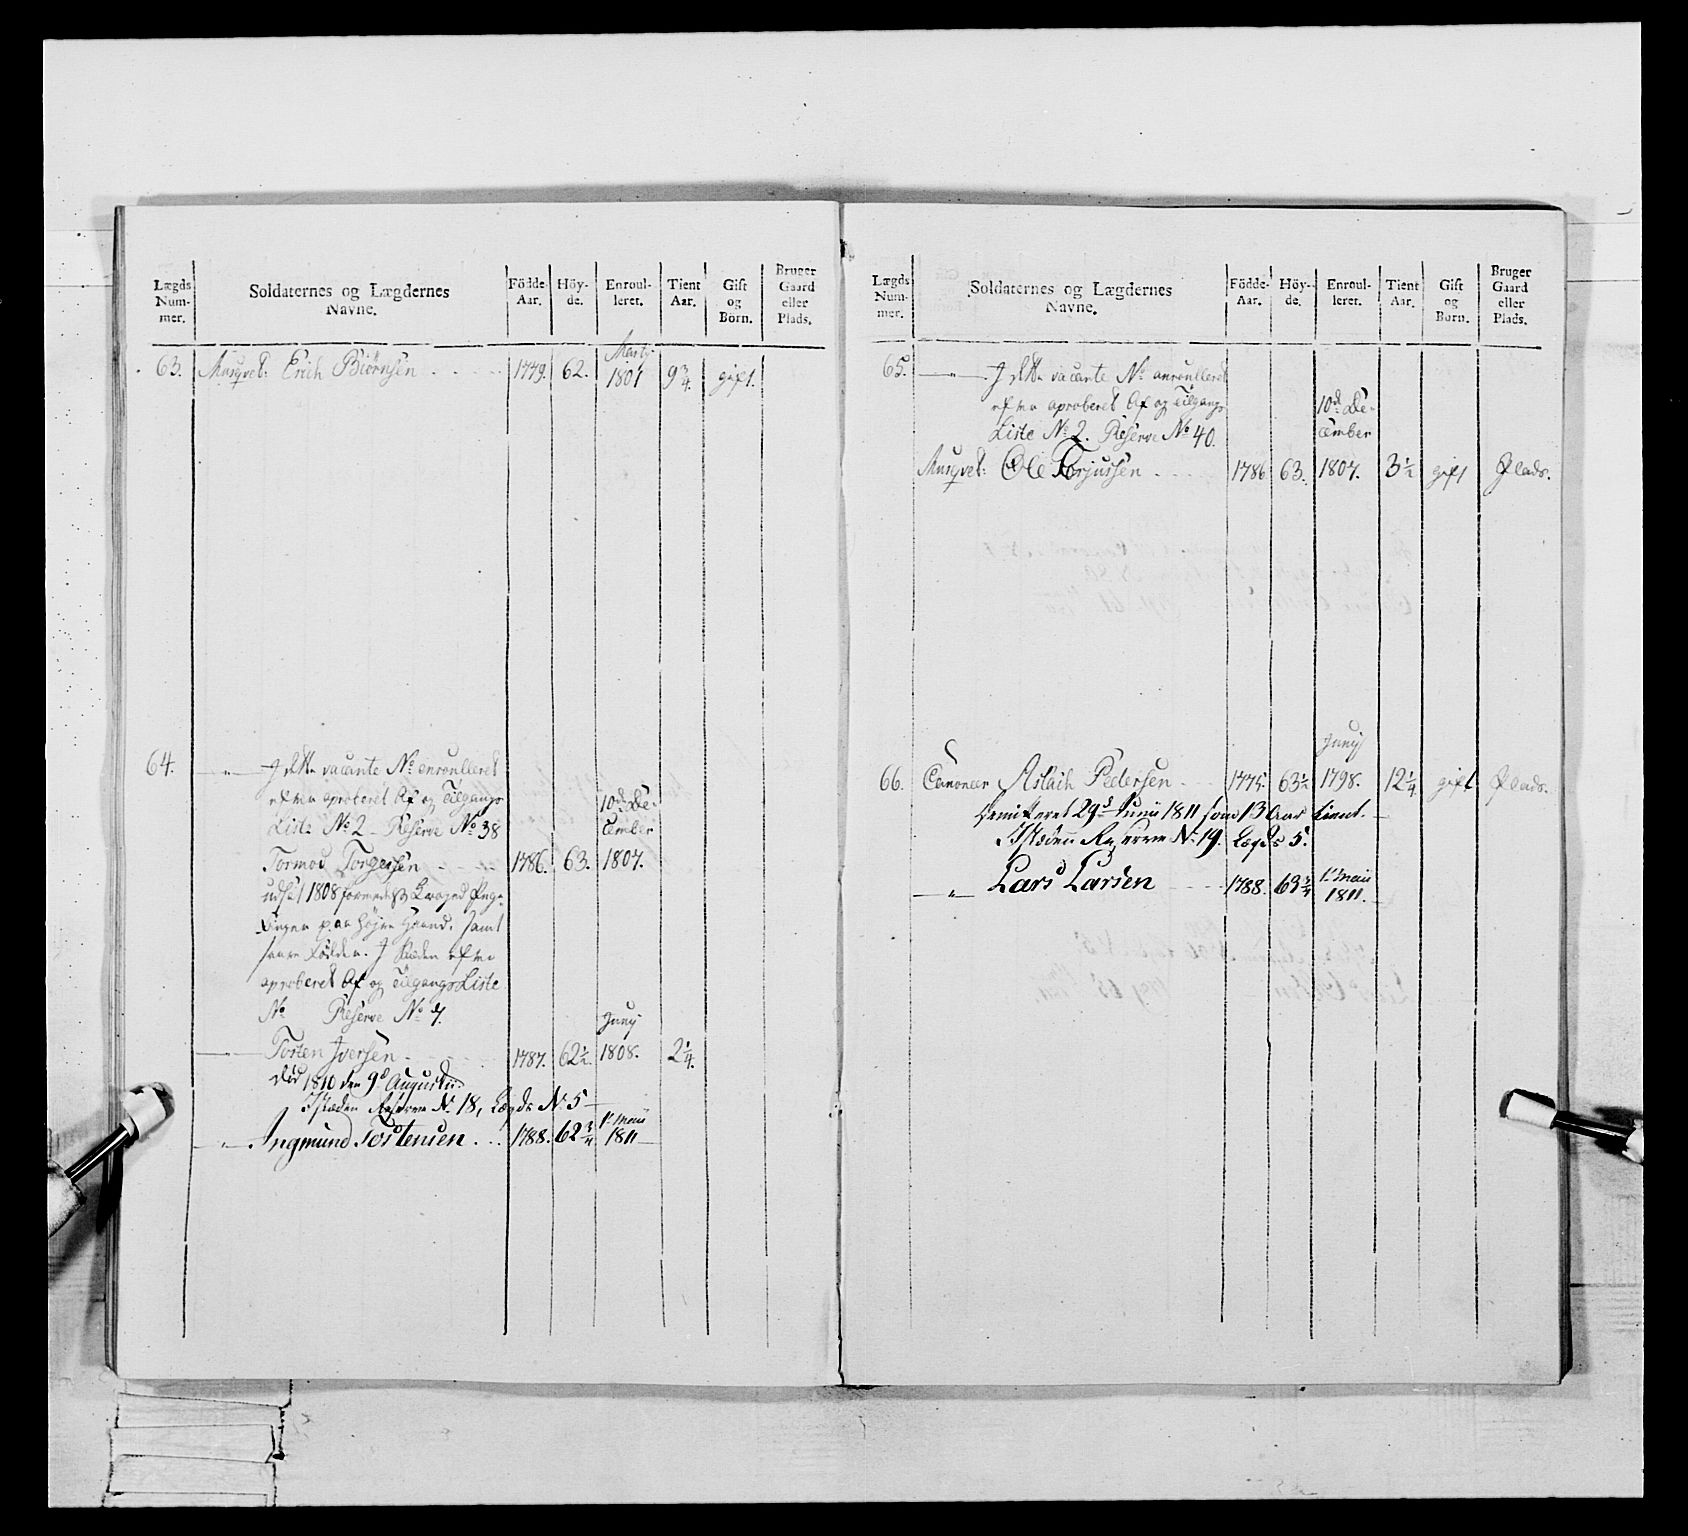 Lægds Num- mer.
Soldaternes og Lægdernes Navne.
Födde- Aar.
Höy- de.
Enroul- leret.
Tient Aar.
Gift og Börn.
Bruger Gaard eller Plads.
Marty
63. Musqvet: Erich Biörnsen 1779. 62. 1801 9¾. gift.
64. " J dette vacante No enroulleret
efter aproberet Af og Tilgangs
Liste No 2 Reserve No 38
10de De-
cember
Tormod Torgersen 1786. 63. 1807.
udsat 1808
samt
J Stæden efter
aproberet Af og Tilgangs Liste
No Reserve No 7.
Juny
Tosten Jversen 1787. 62½. 1808. 2¼.
död 1810 den 9d Augustii.
Jstæden Reserve No 18, Lægds No 5
" Jngmund Tostensen 1788. 62¾ 1t Maii 1811
Lægds Num- mer.
Soldaternes og Lægdernes Navne.
Födde- Aar.
Höy- de.
Enroul- leret.
Tient Aar.
Gift og Born.
Bruger Gaard eller Plads.
65. J dette vacante No anroulleret
efter aproberet Af og Tilgangs
Liste No 2. Reserve No 40.
10de De-
cember
Musqvet: Ole Torjussen 1786 63. 1807. 3½ gift Plads.
Juny
66. Canoneer Aslach Pedersen 1775. 63½ 1798. 12¼ gift Plads.
Demitteret 29d Junii 1811 som 13 Aar tient.
Jstæden Reserve No 19. Lægds 5.
" Lars Larsen 1788. 63¾ 1t Maii 1811.